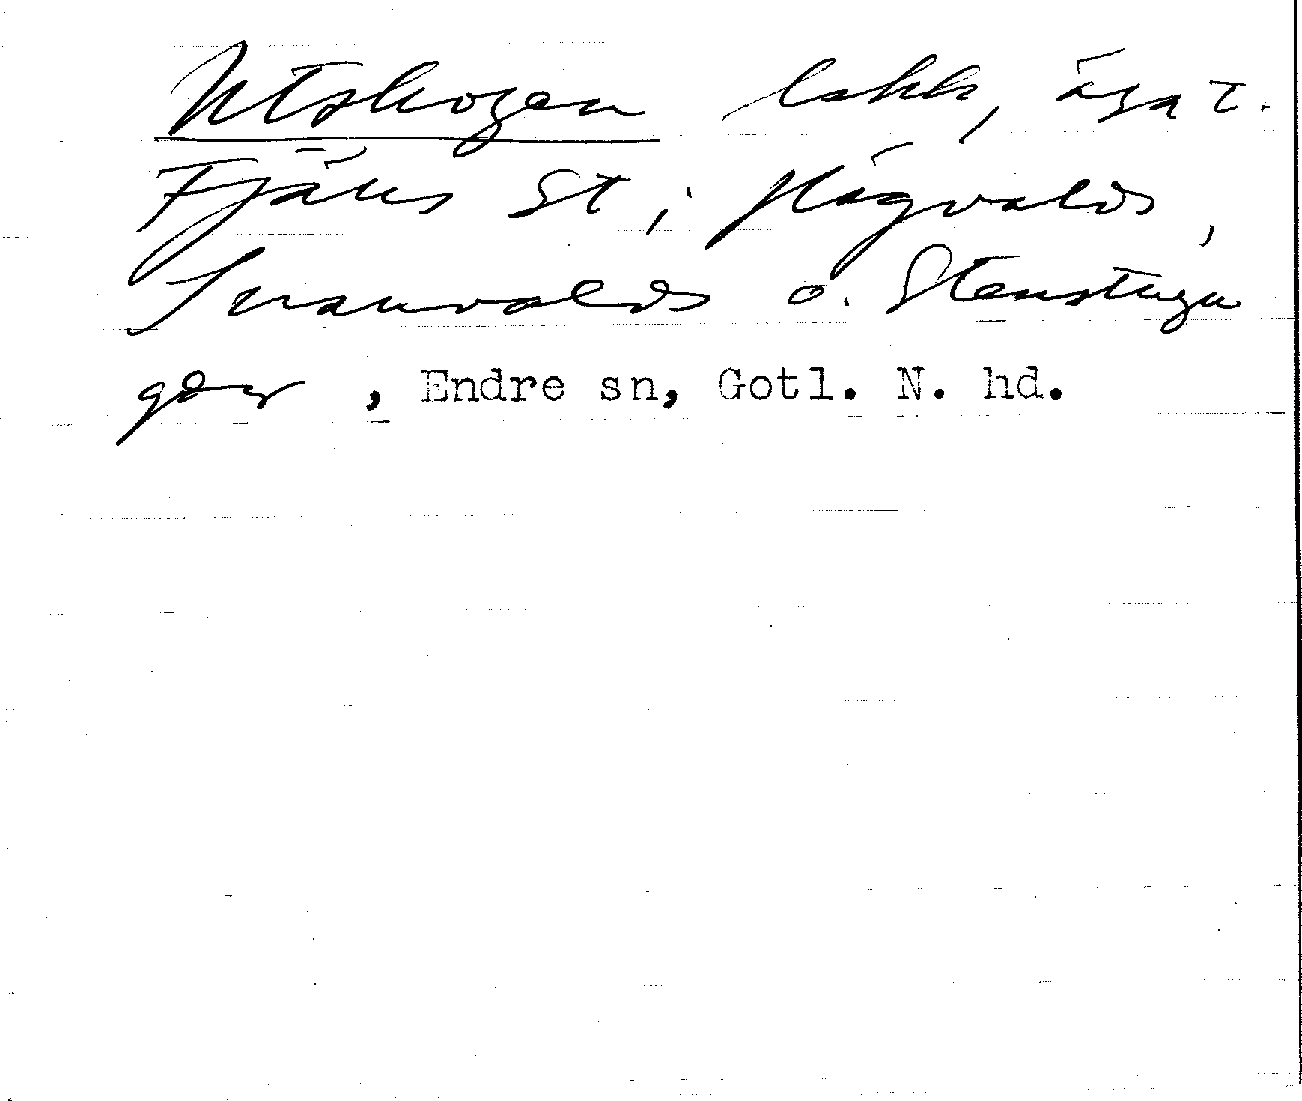 Utskogen backe, äga t.
Fjärs St, i Hägvalds,
Svenvalds o. Stenstugu
gdr, Endre sn, Gotl. N. hd.